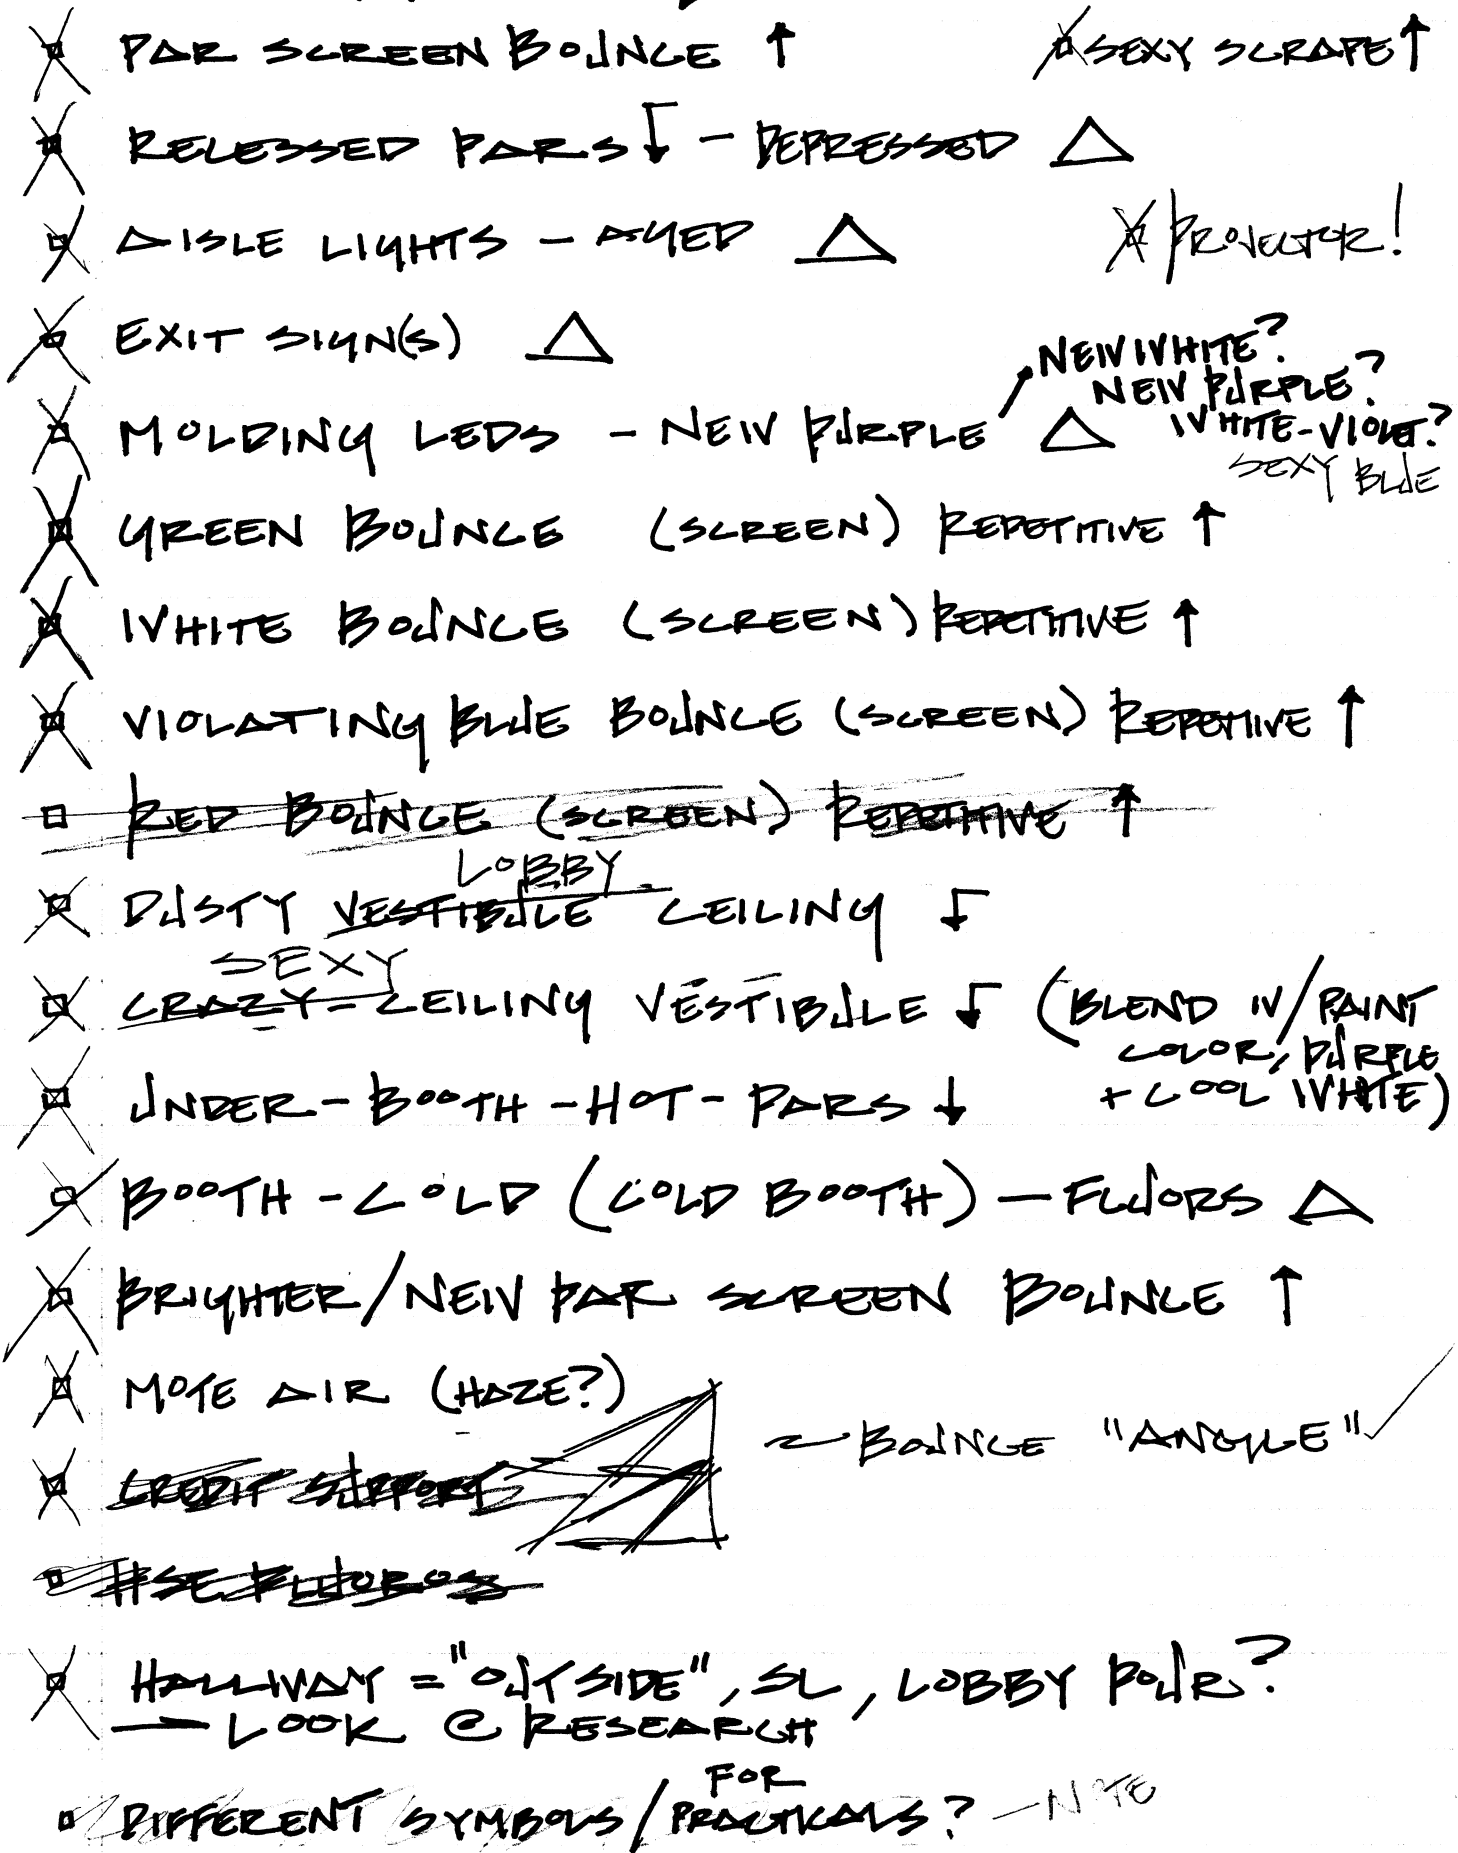 PAR SCREEN BOUNCE ↑
SEXY SCRAPE ↑
RELESSED PARS ↓ - DEPRESSED △
AISLE LIGHTS - AGED △
PROJECTOR!
EXIT SIGN(S) △
NEW WHITE?
NEW PURPLE?
MOLDING LEDS - NEW PURPLE △
WHITE-VIOLET?
SEXY BLUE
GREEN BOUNCE (SCREEN) REPETITIVE ↑
WHITE BOUNCE (SCREEN) REPETITIVE ↑
VIOLATING BLUE BOUNCE (SCREEN) REPETITIVE ↑
RED BOUNCE (SCREEN) REPETITIVE ↑
LOBBY
DUSTY VESTIBULE CEILING ↓
SEXY
CRAZY-CEILING VESTIBULE ↓ (BLEND W/PAINT
COLOR, PURPLE
+ COOL WHITE)
UNDER-BOOTH-HOT-PARS ↓
BOOTH - COLD (COLD BOOTH) - FLUORS △
BRIGHTER/NEW PAR SCREEN BOUNCE ↑
MOTE AIR (HAZE?)
~ BOUNCE "ANGLE" ✓
CREDIT SUPPORT
HALLWAY = "OUTSIDE", SL, LOBBY POUR?
— LOOK @ RESEARCH
FOR
DIFFERENT SYMBOLS/PRACTICALS? - NOTE